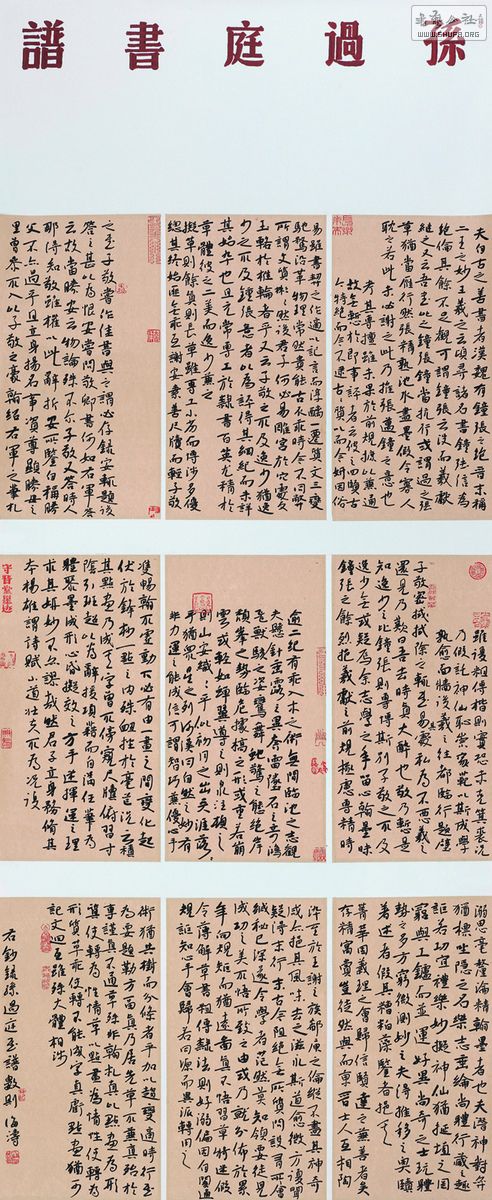 孫過庭書譜
WWW.SHUFA.ORG
夫自古之善書者漢魏有鍾張之絕晉末稱
二王之妙王羲之云頃尋諸名書鍾張信為
絕倫其餘不足觀可謂鍾張云沒而羲獻
繼之又云吾書比之鍾張鍾當抗行或謂過之張
草猶當雁行然張精熟池水盡墨假令寡人
耽之若此未必謝之此乃推張邁鍾之意也
考其專擅雖未果於前規摭以兼通
故無慚於即事評者云彼之四賢古
今特絕而今不逮古古質而今妍因俗
易雖書契之作適以記言而淳醨一遷質文三變
馳騖沿革物理常然貴能古不乖時今不同弊
所謂文質彬彬然後君子何必易雕宮於穴處反
玉輅於椎輪者乎又云子敬之不及逸少猶逸
少之不及鍾張意者以為評得其綱紀而未詳
其始卒也且元常專工於隸書百英尤精於
草體彼之二美而逸少兼之
擬草則餘真比真則長草雖專工小劣而博涉多優
總其終始匪無乖互謝安素善尺牘而輕子敬
之書子敬嘗作佳書與之謂必存錄安輒題後
答之甚以為恨安嘗問敬卿書何如右軍答
云故當勝安云物論殊不爾子敬又答時人
那得知敬雖權以此辭折安所鑒自稱勝
父不亦過乎且立身揚名事資尊顯勝母之
里曾參不入以子敬之豪翰紹右軍之筆札
雖復粗傳楷則實恐未克箕裘況
乃假託神仙恥崇家範以斯成學
孰愈面牆後羲之往都臨行題壁
子敬密拭除之輒書易其處私為不惡羲之
還見乃歎曰吾去時真大醉也敬乃內慚是
知逸少之比鍾張則專博斯別子敬之不及
逸少無或疑焉余志學之年留心翰墨味
鍾張之餘烈挹羲獻之前規極慮專精時
逾二紀有乖入木之術無間臨池之志觀
夫懸針垂露之異奔雷墜石之奇鴻
飛獸駭之姿鸞舞蛇驚之態絕岸
頹峯之勢臨危據槁之形或重若崩
雲或輕如蟬翼導之則泉注頓之
則山安纖纖乎似初月之出天涯落落
乎猶衆星之列河漢同自然之妙有
非力運之能成信可謂智巧兼優心手
雙暢翰不虛動下必有由一畫之間變化起
伏於鋒杪一點之內殊衄挫於毫芒況云積
其點畫乃成其字曾不傍窺尺牘俯習寸
陰引班超以為辭援項籍而自滿任筆為
體聚墨成形心昏擬效之方手迷揮運之理
求其妍妙不亦謬哉然君子立身務修其
本楊雄謂詩賦小道壯夫不為況復
守晉堂墨迹
溺思毫釐淪精翰墨者也夫潛神對弈
猶標坐隱之名樂志垂綸尚體行藏之趣
詎若功宣禮樂妙擬神仙猶埏埴之罔
窮與工鑪而並運好異尚奇之士玩體
勢之多方窮微測妙之夫得推移之奧賾
著述者假其糟粕藻鑒者挹其
菁華固義理之會歸信賢達之兼善者矣
存精寓賞豈徒然與而東晉士人互相陶
淬至於王謝之族郗庾之倫縱不盡其神奇
咸亦挹其風味去之滋永斯道愈微方復聞
疑稱疑得末行末古今阻絕無所質問設有所會
緘秘已深遂令學者茫然莫知領要徒見
成功之美不悟所致之由或乃就分布於累
年向規矩而猶遠圖真不悟習草將迷假
令薄解草書粗傳隸法則好溺偏固自閡通
規詎知心手會歸若同源而異派轉用之
術猶共樹而分條者乎加以趨變適時行書
為要題勒方幅真乃居先草不兼真殆於
專謹真不通草殊非翰札真以點畫為形
質使轉為情性草以點畫為情性使轉為
形質草乖使轉不能成字真虧點畫猶可
記文回互雖殊大體相涉
右錄孫過庭書譜數則